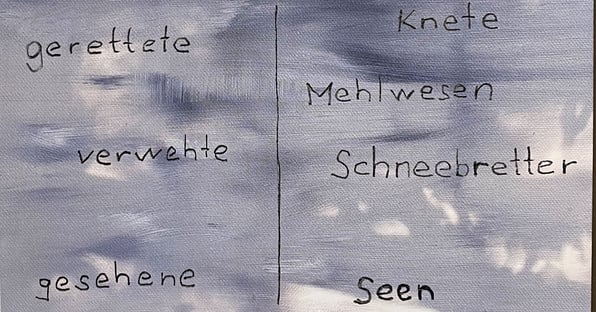 gerettete
verwehte
gesehene
Knete
Mehlwesen
Schneebretter
Seen